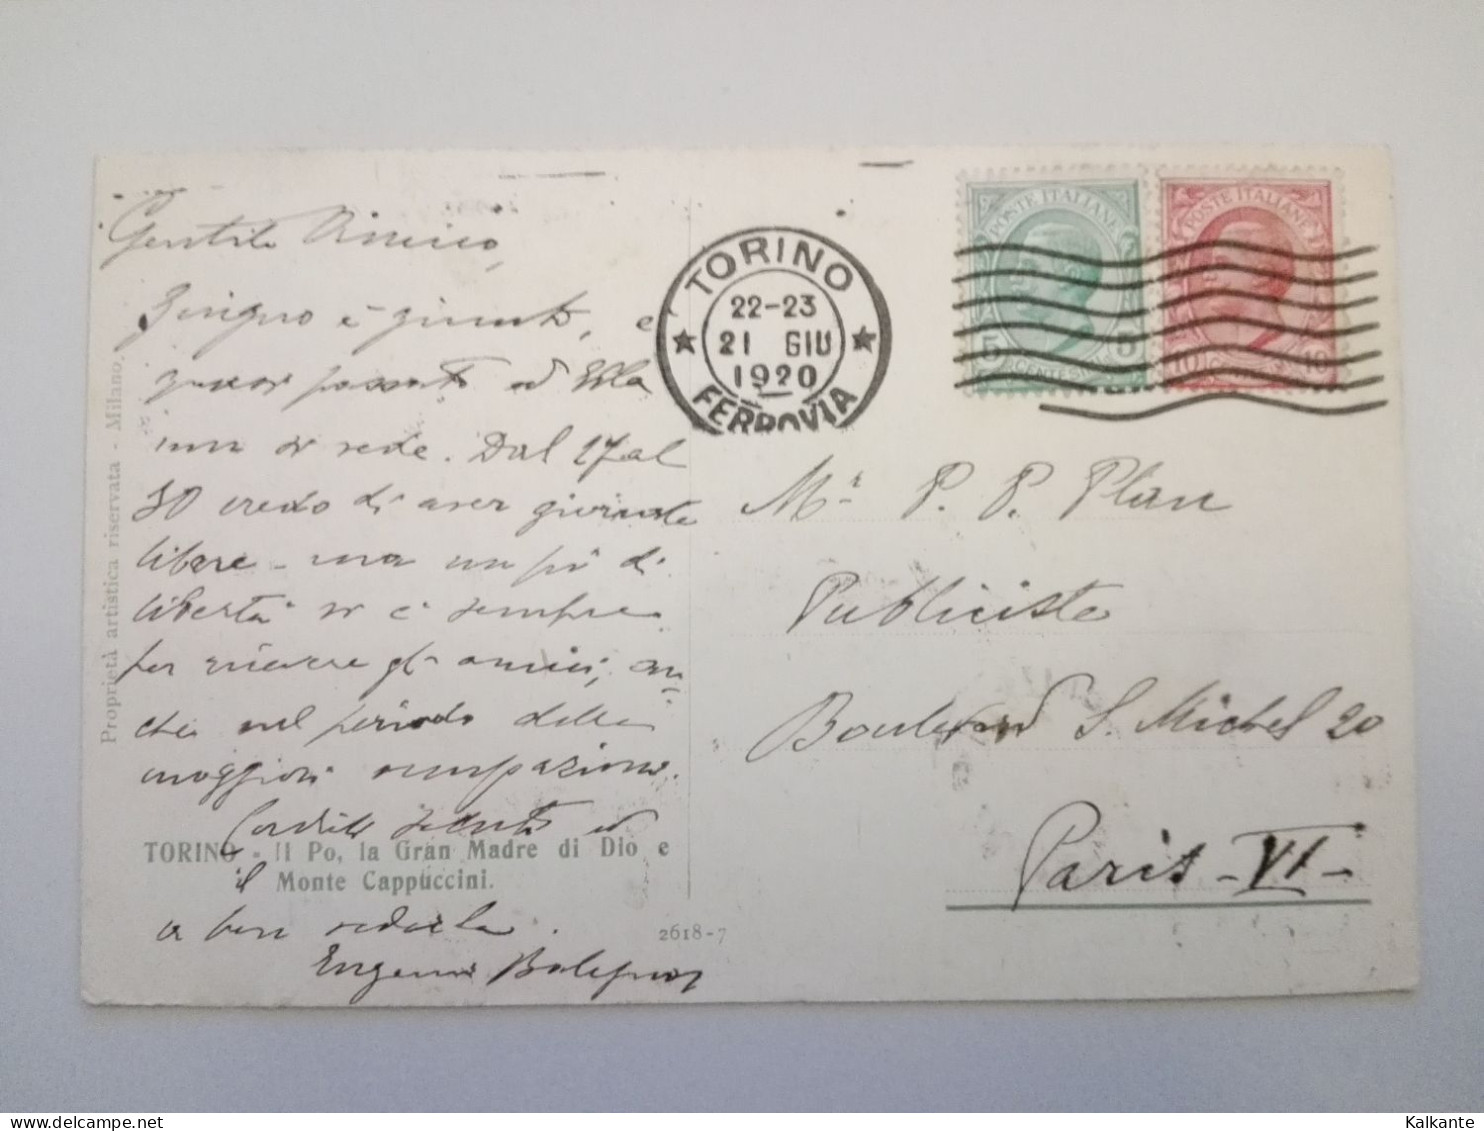 Gentile Amico,
Giugno è giunto, e
quasi passato ed Ella
non si vede. Dal 27 al
30 credo di aver giornate
libere - ma un pò di
libertà vi è sempre
per ricevere gli amici, an-
che nel periodo della
maggiore occupazione.
Cordiale saluto ed
il
a ben vederla.
Proprietà artistica riservata - Milano.
TORINO - Il Po, la Gran Madre di Dio e
Monte Cappuccini.
2618-7
TORINO
22-23
21 GIU
1920
FERROVIA
POSTE ITALIANE
5 CENTESIMI 5
POSTE ITALIANE
10 10
Mr P. P. Plan
Publiciste
Boulevard S. Michel 20
Paris - VI -
Kalkante